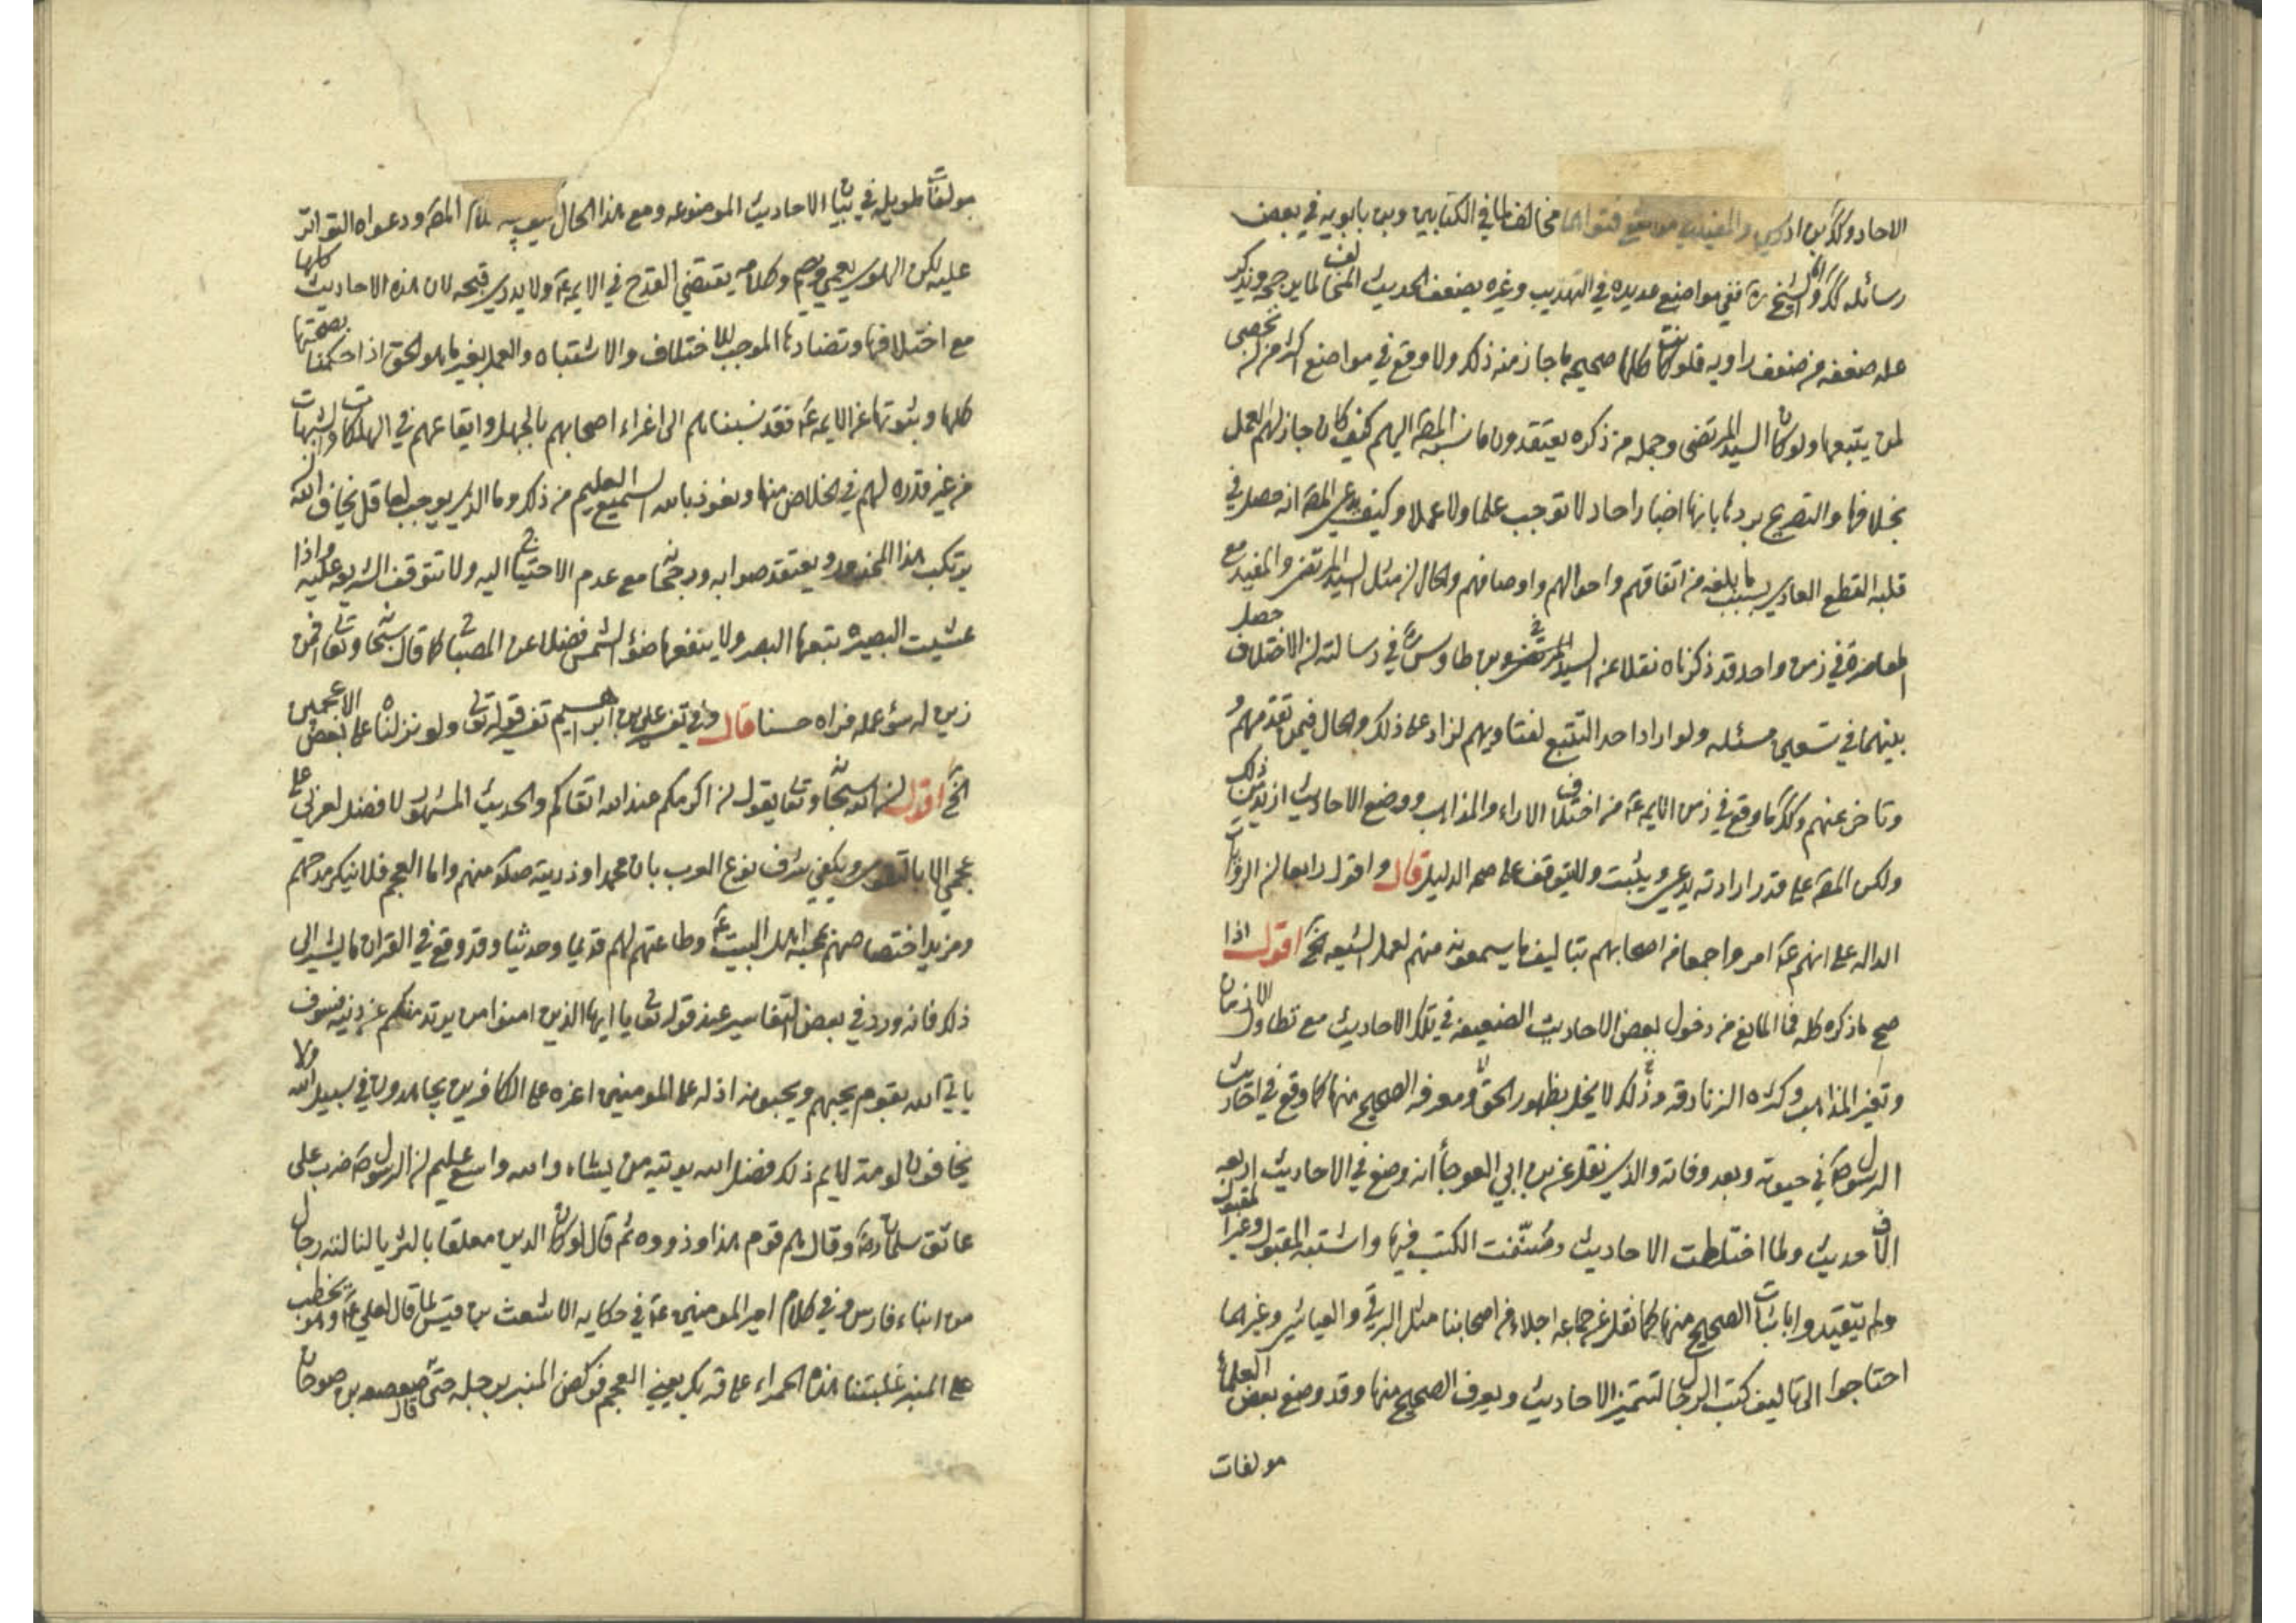 الاحاد وكذا بن ادريس والمفيد في مواضع فتواهما مخالف لما في الكتابين وبن بابويه في بعض
رسائله كذا واما الشيخ ره ففي مواضع عديده في التهذيب وغيره يضعف الحديث المخالف لما يرجحه ويذكر
عله ضعفه من ضعف راويه فلو كانت كلها صحيحه ما جاز منه ذلك ولا وقع في مواضع اكثر من ان تحصى
لمن يتبعها ولو كان السيد المرتضى وجمله من ذكره يعتقدون ما نسبه المصه اليهم كيف كان جاز لهم العمل
بخلافها والتصريح بردها بانها اخبار احاد لا توجب علما ولا عملا وكيف يدعي المصه انه حصل في
قلبه القطع العادي بسبب ما بلغه من اتفاقهم واحوالهم واوصافهم والحال ان مثل السيد المرتضى والمفيد مع
المعاصرة في زمن واحد قد ذكرناه نقلا عن السيد المرتضى بن طاوس ره في رسالته ان الاختلاف حصل
بينهما في تسعين مسئله ولو اراد احد التتبع لفتاويهم لزاد على ذلك والحال فيمن تقدمهم و
وتاخر عنهم وكذا ما وقع في زمن الايمه ع من اختلاف الاراء والمذاهب ووضع الاحاديث ازيد من ذلك
ولكن المصه على قدر ارادته يدعي ويثبت ولا يتوقف على صحه الدليل قال واقول رابعا ان الروايات
الداله على انهم ع امروا جمعا من اصحابهم بتاليف ما يسمعونه منهم لعمل الشيعه الخ اقول اذا
صح ما ذكره كله فما المانع من دخول بعض الاحاديث الضعيفه في تلك الاحاديث مع تطاول الازمان
وتغير المذاهب وكثره الزنادقه وذلك لا يخل بظهور الحق ومعرفه الصحيح منها كما وقع في احاديث
الرسول ص في حيوته وبعد وفاته والذي نقل عن بن ابي العوجا انه وضع في الاحاديث اربعه
الاف حديث ولما اختلطت الاحاديث وصنفت الكتب فيها واشتبه المقبول وغير المقبول
ولم يتقيدوا باثبات الصحيح منها كما نقل عن جماعه اجلاء من اصحابنا مثل البرقي والعياشي وغيرهما
احتاجوا الى تاليف كتب الرجال لتتميز الاحاديث ويعرف الصحيح منها وقد وضع بعض العلماء
مولفات
مولفات طويله في بيان الاحاديث الموضوعه ومع هذا الحال كلام المصه ودعواه التواتر
عليه لكن الهوى يعمي ويصم وكلامه يقتضي القدح في الايمه ع ولا يدري قبحه لان هذه الاحاديث كلها
مع اختلافها وتضادها الموجب للاختلاف والاشتباه والعمل بغير ما هو الحق اذا حكمنا بصحتها
كلها وبثوتها عن الايمه ع فقد نسبناهم الى اغراء اصحابهم بالجهل وايقاعهم في الهلكات والشبهات
من غير قدره لهم في الخلاص منها ونعوذ بالله السميع العليم من ذلك وما الذي يوجب لعاقل يخاف الله
يرتكب هذا المحذور ويعتقد صوابه ورجحانه مع عدم الاحتياج اليه ولا تتوقف الشريعه عليه واذا
عشيت البصيره تبعها البصر ولا ينفعها ضوء الشمس فضلا عن المصباح كما قال سبحانه وتعالى افمن
زين له سوء عمله فراه حسنا قال وفي تفسير علي بن ابراهيم تفسير قوله تعالى ولو نزلناه على بعض الاعجمين
الخ اقول ان الله سبحانه وتعالى يقول ان اكرمكم عند الله اتقاكم والحديث المشهور لا فضل لعربي على
عجمي الا بالتقوى ويكفي شرف نوع العرب بان محمدا وذريته صلم منهم واما العجم فلا ينكر مدحهم
ومزيد اختصاصهم بمحبه اهل البيت ع وطاعتهم لهم قديما وحديثا وقد وقع في القران ما يشير الى
ذلك فانه ورد في بعض التفاسير عند قوله تعالى يا ايها الذين امنوا من يرتد منكم عن دينه فسوف
ياتي الله بقوم يحبهم ويحبونه اذله على المومنين اعزه على الكافرين يجاهدون في سبيل الله ولا
يخافون لومة لايم ذلك فضل الله يوتيه من يشاء والله واسع عليم ان الرسول ص ضرب على
عاتق سلمان رض وقال هم قوم هذا وذووه ثم قال لو كان الدين معلقا بالثريا لناله رجال
من ابناء فارس وفي كلام امير المومنين ع في حكايه الاشعث بن قيس لما قال لعلي ع وهو يخطب
على المنبر غلبتنا هذه الحمراء على قربك يعني العجم فركض المنبر برجله حتى قال صعصعه بن صوحان